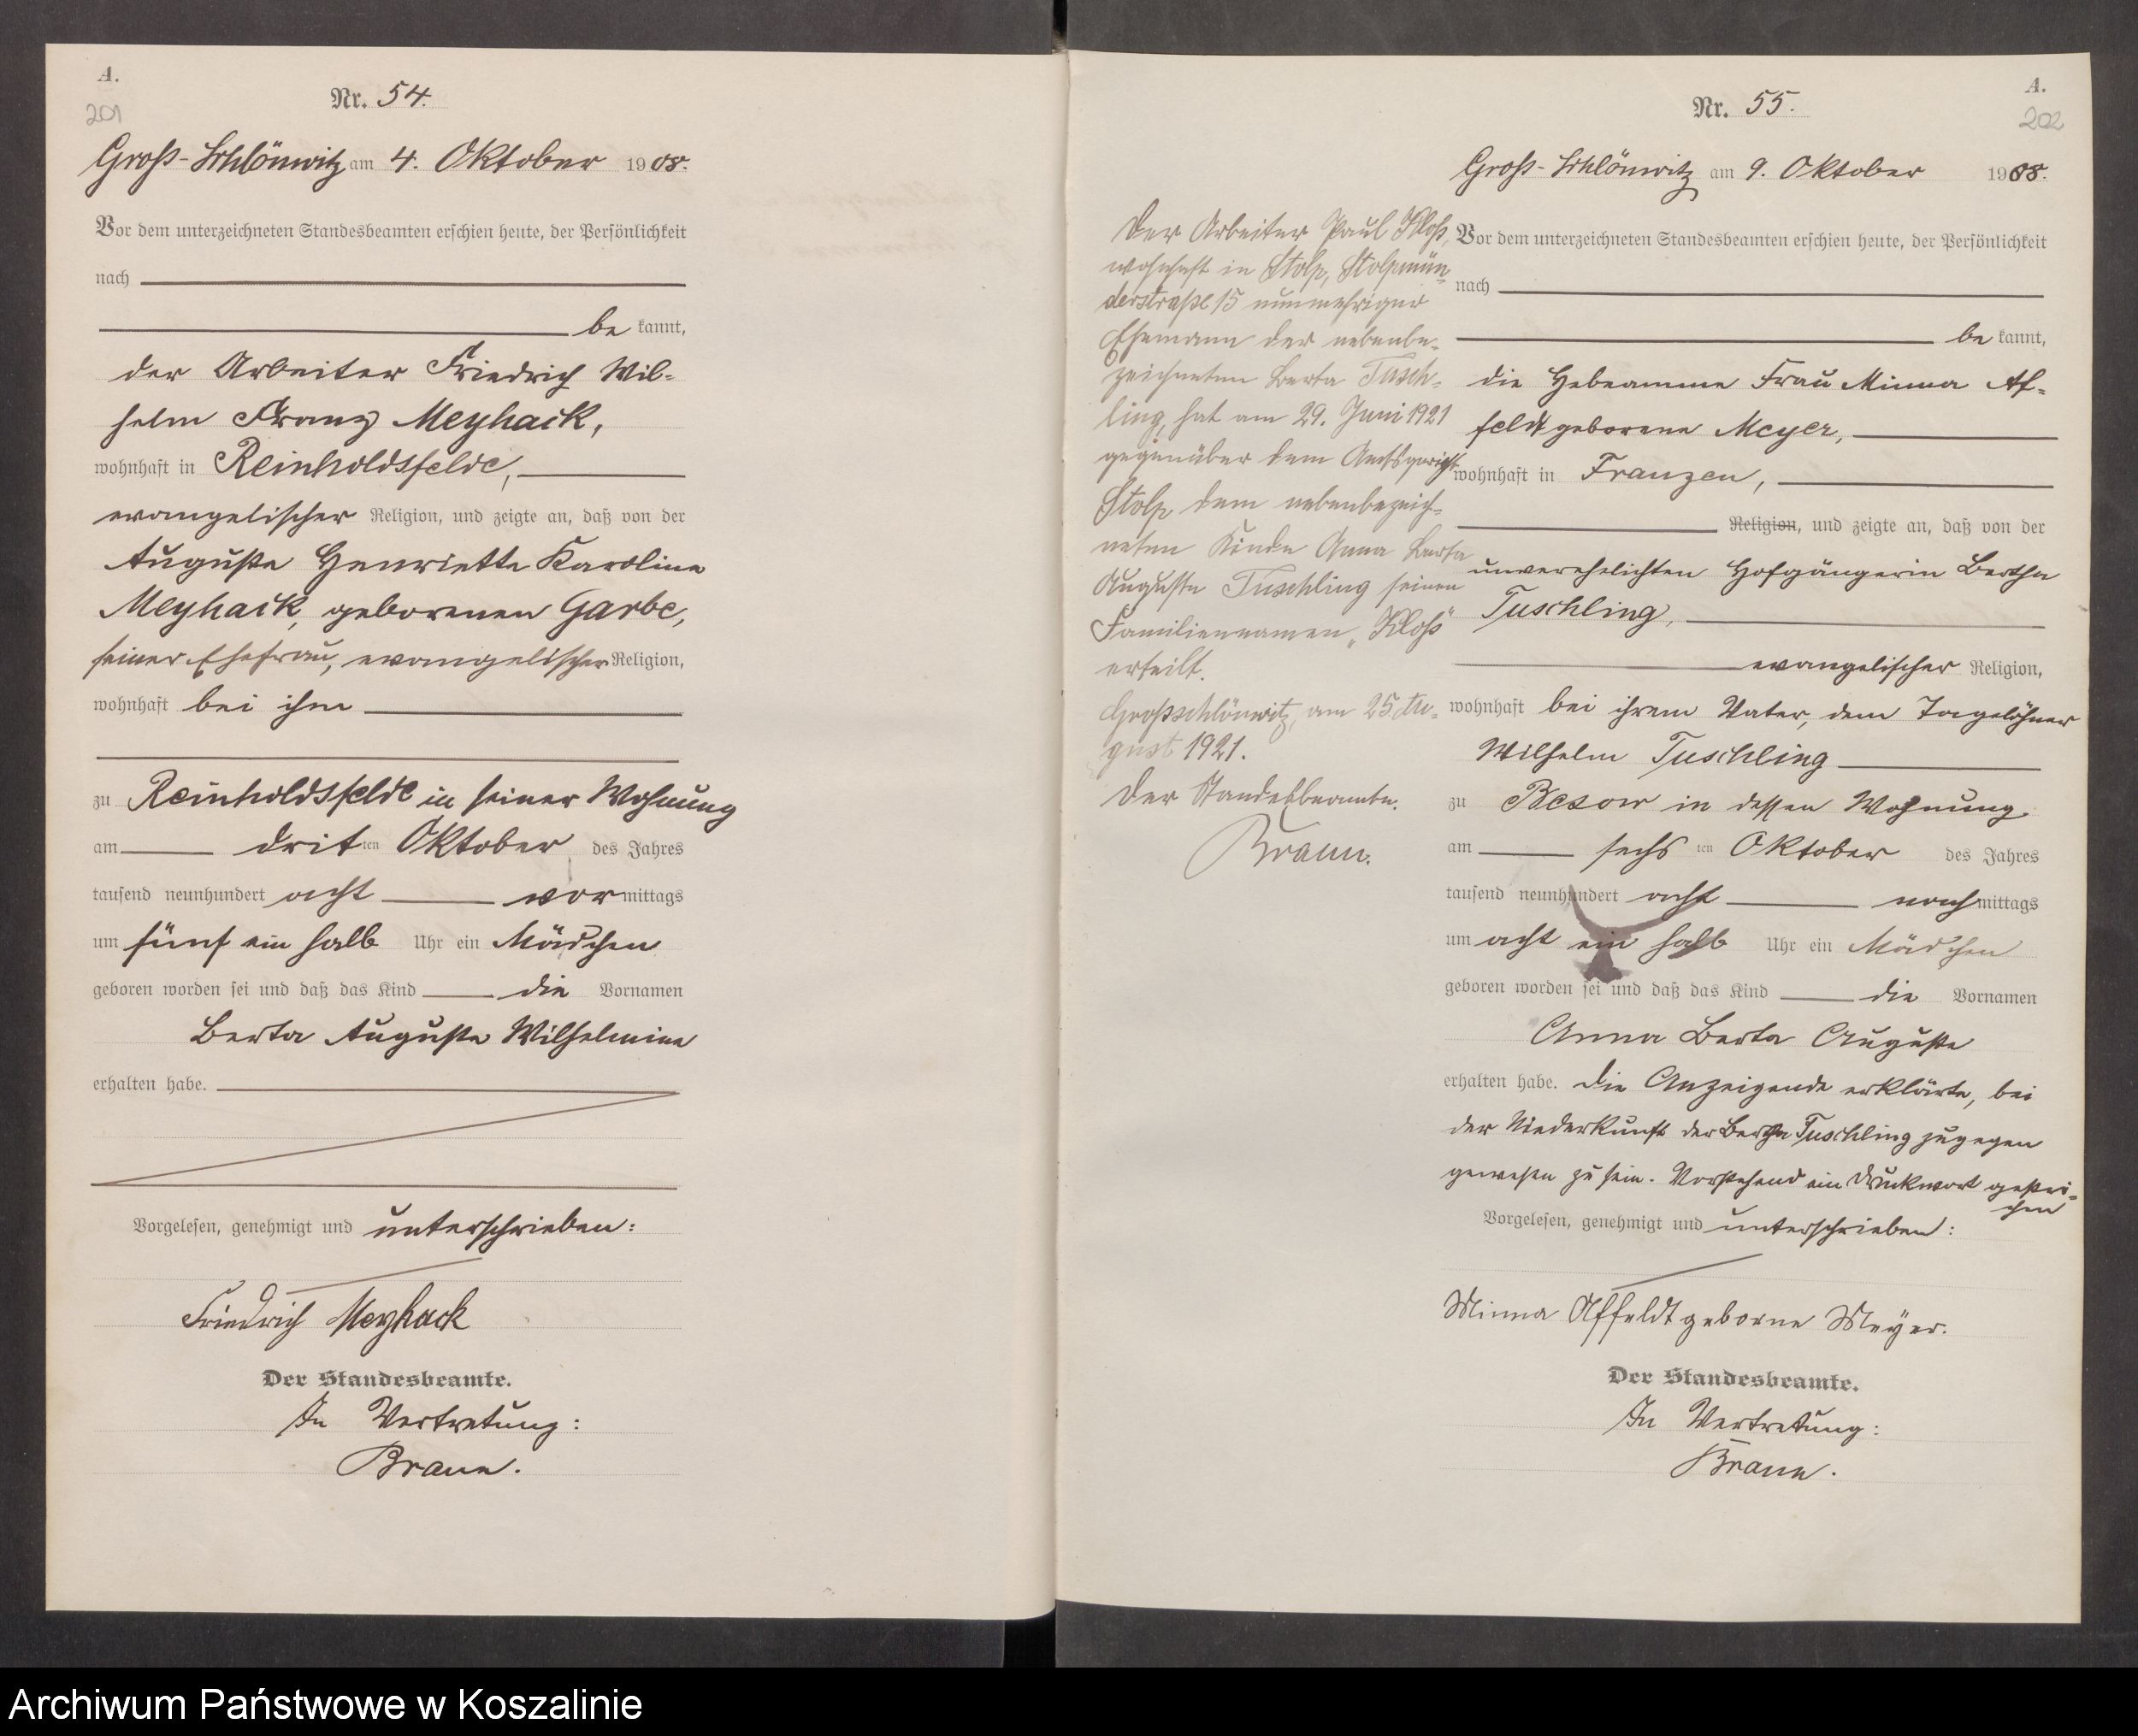 A.
201
Nr. 54.
Groß-Schlönwitz am 4. Oktober 1908.
Vor dem unterzeichneten Standesbeamten erschien heute, der Persönlichkeit
nach
be kannt,
der Arbeiter Friedrich Wil-
helm Franz Meyhack,
wohnhaft in Reinholdsfelde,
evangelischer Religion, und zeigte an, daß von der
Auguste Henriette Karoline
Meyhack, geborenen Garbe,
seiner Ehefrau, evangelischer Religion,
wohnhaft bei ihm
zu Reinholdsfelde in seiner Wohnung
am dritten Oktober des Jahres
tausend neunhundert acht vormittags
um fünf ein halb Uhr ein Mädchen
geboren worden sei und daß das Kind die Vornamen
Berta Auguste Wilhelmine
erhalten habe.
Vorgelesen, genehmigt und unterschrieben:
Friedrich Meyhack
Der Standesbeamte.
In Vertretung:
Braun.
A.
202
Nr. 55.
Groß-Schlönwitz am 9. Oktober 1908.
Vor dem unterzeichneten Standesbeamten erschien heute, der Persönlichkeit
nach
be kannt,
die Hebeamme Frau Minna Af-
feldt geborene Meyer,
wohnhaft in Franzen,
Religion, und zeigte an, daß von der
unverehelichten Hofgängerin Bertha
Tuschling,
evangelischer Religion,
wohnhaft bei ihrem Vater, dem Tagelöhner
Wilhelm Tuschling
zu Besow in dessen Wohnung
am sechsten Oktober des Jahres
tausend neunhundert acht nachmittags
um acht ein halb Uhr ein Mädchen
geboren worden sei und daß das Kind die Vornamen
Anna Berta Auguste
erhalten habe. Die Anzeigende erklärte, bei
der Niederkunft der Bertha Tuschling zugegen
gewesen zu sein. Vorstehend ein Druckwort gestri-
chen
Vorgelesen, genehmigt und unterschrieben:
Minna Affeldt geborne Meÿer.
Der Standesbeamte.
In Vertretung:
Braun.
Der Arbeiter Paul Kloß,
wohnhaft in Stolp, Stolpmün-
derstraße 15 nunmehriger
Ehemann der nebenbe-
zeichneten Berta Tusch-
ling, hat am 29. Juni 1921
gegenüber dem Amtsgericht
Stolp dem nebenbezeich-
neten Kinde Anna Berta
Auguste Tuschling seinen
Familiennamen „Kloß"
erteilt.
Großschlönwitz, am 25 Au-
gust 1921.
Der Standesbeamte.
Braun.
Archiwum Państwowe w Koszalinie